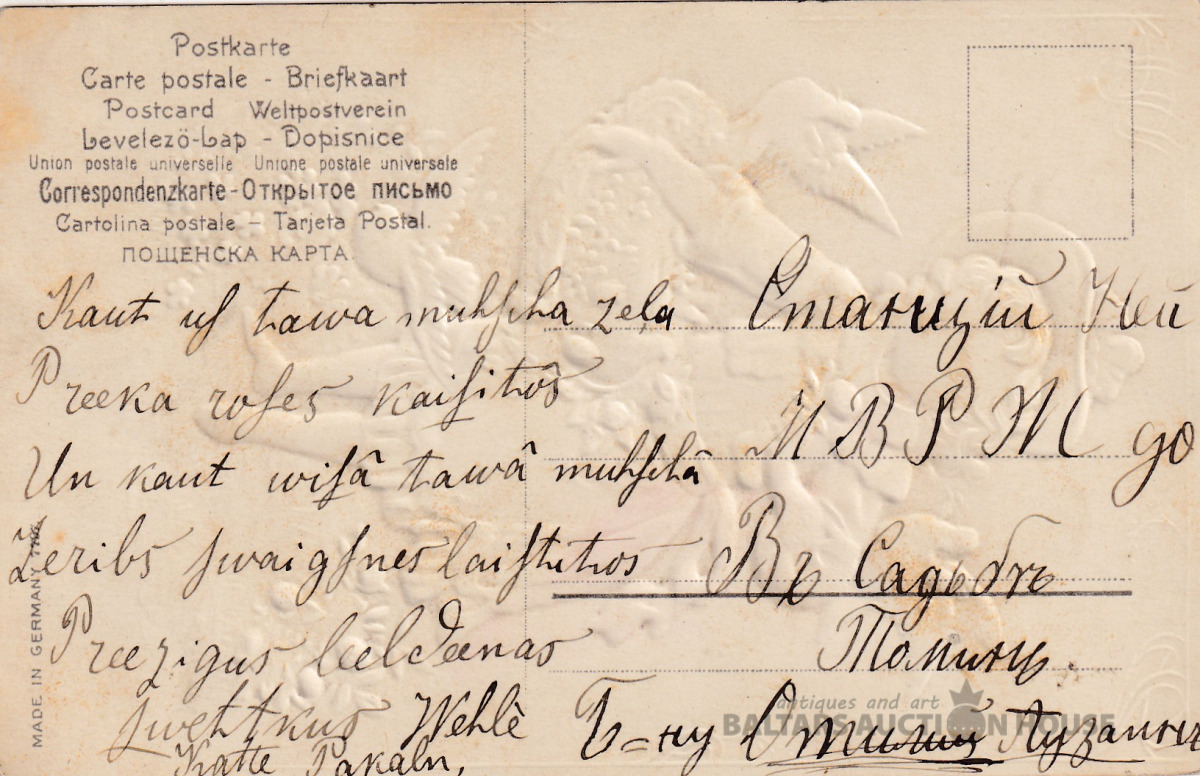 Postkarte
Carte postale - Briefkaart
Postcard Weltpostverein
Levelezö-Lap - Dopisnice
Union postale universelle Unione postale universale
Correspondenzkarte - Открытое письмо
Cartolina postale - Tarjeta Postal.
ПОЩЕНСКА КАРТА.
Kaut uf tawa muhscha zeļa
Preeka roses kaisitos
Un kaut wisâ tawâ muhschâ
Zeribs swaigsnes laistitos
Preezigus leeldeenas
swehtkus Wehlè
Katte Pakaln,
Станцій Ней
М В Р Ж до
Въ Садьбѣ
Томинц.
Б=ну
MADE IN GERMANY
antiques and art
BALTARS AUCTION HOUSE